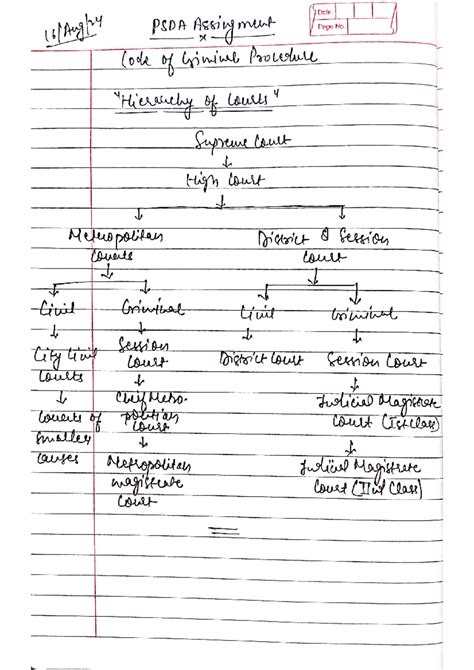 16/Aug/24
PSDA Assignment
Date
Page No.
x
Code of Criminal Procedure
"Hierarchy of Courts"
Supreme Court
High Court
Metropolitan Courts
District & Session Court
Civil Criminal Civil Criminal
City Civil Courts
Session Court
District Court
Session Court
Courts of smaller causes
Chief Metropolitian Court
Judicial Magistrate Court (Ist Class)
Metropolitan magistrate Court
Judicial Magistrate Court (IInd Class)